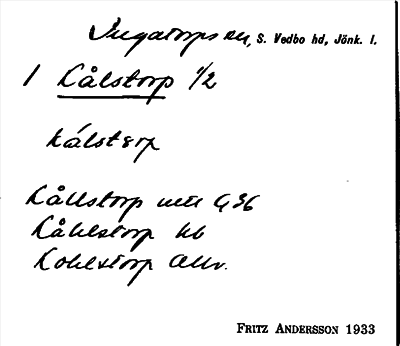 Ingatorps sn, S. Vedbo hd, Jönk. l.
1 Kålstorp 1/2
kålstorp
Kållstorp
Kåhlstorp kb
Kohlstorp Allv.
FRITZ ANDERSSON 1933